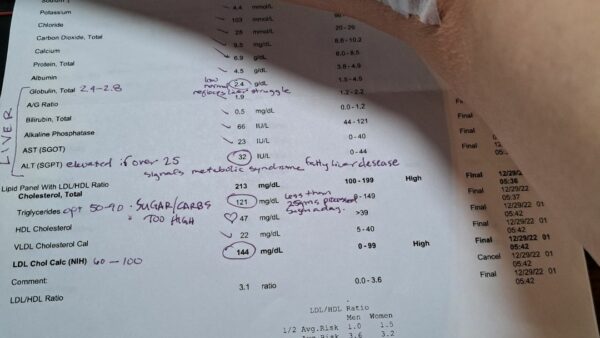 Potassium 4.4 mmol/L
Chloride 103 mmol/L 96 -
Carbon Dioxide, Total 28 mmol/L 20 - 29
Calcium 9.5 mg/dL 8.6-10.2
Protein, Total 6.9 g/dL 6.0-8.5
Albumin 4.5 g/dL 3.8-4.9
Globulin, Total 2.4-2.8 low normal 2.4 g/dL 1.5-4.5
reflects liver struggle
A/G Ratio 1.9 1.2-2.2
Bilirubin, Total 0.5 mg/dL 0.0-1.2 Final
LIVER
Alkaline Phosphatase 66 IU/L 44 - 121 Final
AST (SGOT) 23 IU/L 0-40 Final
ALT (SGPT) elevated if over 25 32 IU/L 0-44 Final
signals metabolic syndrome fatty liver desease
Lipid Panel With LDL/HDL Ratio
Cholesterol, Total 213 mg/dL 100 - 199 High Final 12/29/2
05:36
Triglycerides opt 50-90 • SUGAR/CARBS 121 mg/dL -149 Final
• TOO HIGH less than 25gms processed sugar a day.
HDL Cholesterol 47 mg/dL >39 Final
VLDL Cholesterol Cal 22 mg/dL 5-40 Final
LDL Chol Calc (NIH) 60-100 144 mg/dL 0-99 High Final 12/29/22 01
05:42
Comment: Cancel 12/29/22 01
05:42
LDL/HDL Ratio 3.1 ratio 0.0-3.6 Final 12/29/22 01
05:42
LDL/HDL Ratio
Men Women
1/2 Avg.Risk 1.0 1.5
Avg.Risk 3.6 3.2